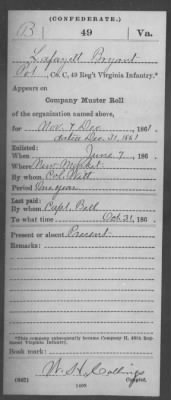 (CONFEDERATE.)
B 49 Va.
Lafayett Bryant
Pvt, Co. C, 49 Reg't Virginia Infantry.*
Appears on
Company Muster Roll
of the organization named above,
for Nov. & Dec., 1861
dated Dec. 31, 1861
Enlisted:
When June 7, 186
Where New Market
By whom Col. Witt
Period One year
Last paid:
By whom Capt. Ball
To what time Oct. 31, 186
Present or absent Present
Remarks:
*This company subsequently became Company H, 49th Regiment Virginia Infantry.
Book mark:
W. H. Collings
(642) Copyist.